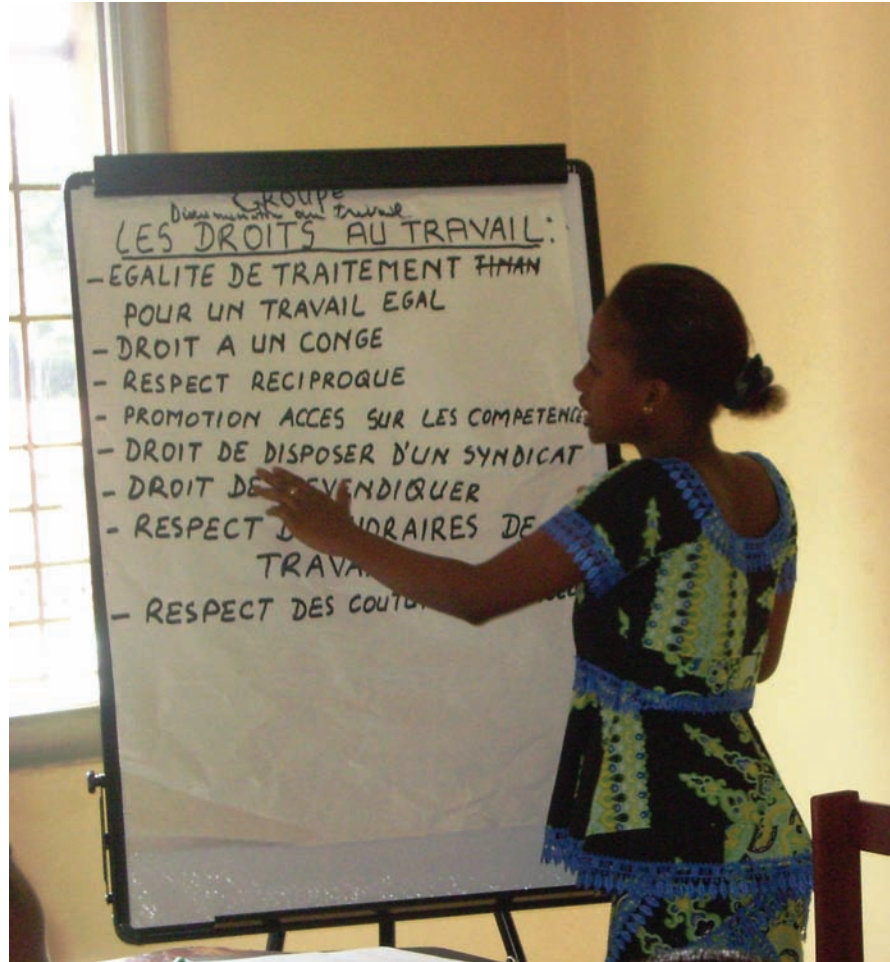 GROUPE
Discrimination au travail
LES DROITS AU TRAVAIL:
- EGALITE DE TRAITEMENT
POUR UN TRAVAIL EGAL
- DROIT A UN CONGE
- RESPECT RECIPROQUE
- PROMOTION ACCES SUR LES COMPETENCE
- DROIT DE DISPOSER D'UN SYNDICAT
- DROIT DE REVENDIQUER
- RESPECT HORAIRES DE
TRAVAI
- RESPECT DES